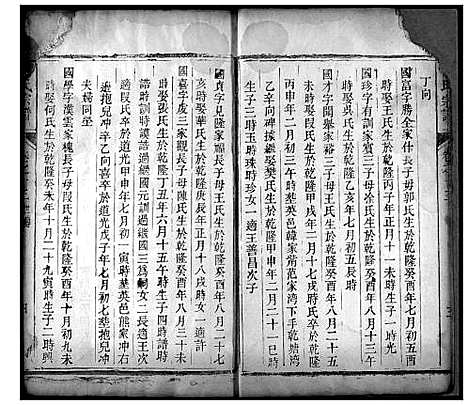 丁向
國富字勝全家仕長子母郭氏生於乾隆癸酉年七月初五酉
時娶王氏生於乾隆丙子年正月十一未時生子一時光
國珍字有訓家賓三子母徐氏生於乾隆癸酉年八月十三午
時娶吳氏生於乾隆乙亥年七月初五辰時
國才字開葉家裕三子母王氏生於乾隆癸酉年八月二十五
辰時卒於乾隆甲戌年二月十七戌時葬
丙申年二月初三午時葬英邑韓家凊范家湾下手乾塘湾
乙辛向碑據繼娶樊氏生於乾隆甲申年二月二十一巳時
生子三時王時珠時珍女一適王善昌次子
國真字見隆家福長子母王氏生於乾隆癸酉年八月二十七
亥時娶華氏生於乾隆庚辰年正月十八戌時女一適許
國喜字處三家觀長子母陳氏生於乾隆癸酉年八月三十未
時娶張氏生於乾隆丁丑年六月十五午時生子四時譜時
誥時訓時謨誥過繼國元訓過繼國三為嗣女二長適王次
適段氏卒於道光甲申年七月初一寅時葬英邑熊家冲右
邊抱兒冲辛乙向喜卒於道光戊子年七月初七葬抱兒冲
夫婦同塋
國學字漢雲家槐長子母丁氏生於乾隆癸酉年十月初九未
時娶何氏生於乾隆癸未年十月二十九寅時生子二時興